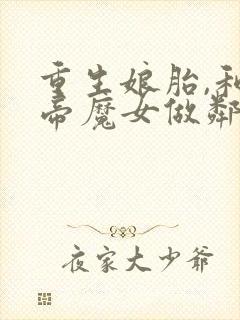 重生娘胎,和
帝魔女做鄰
夜家大少爺